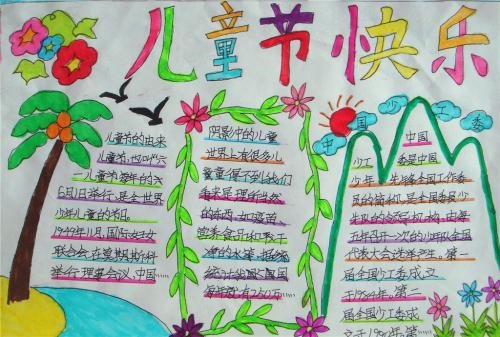 儿童节快乐
儿童节的由来
儿童节,也叫六
一儿童节,每年的六
月1日举行,是全世界
少年儿童的节日。
1949年11月,国际妇女
联合会在莫斯科
举行理事会议,中国……
阴影中的儿童
世界上有很多儿
童童得不到给我们
看来是理所当然
的东西,如疫苗
营养食品和干
净的水等,据统
中国少工委
中国
少工委是中国
少年先锋队全国工作委
员的简称,是全国委员少
先队的领导机构,由每
五年召开一次的少年队全国
代表大会选举产生。第一
届全国少工委成立
于1984年。第二
届全国少工委成
立于1990年。第